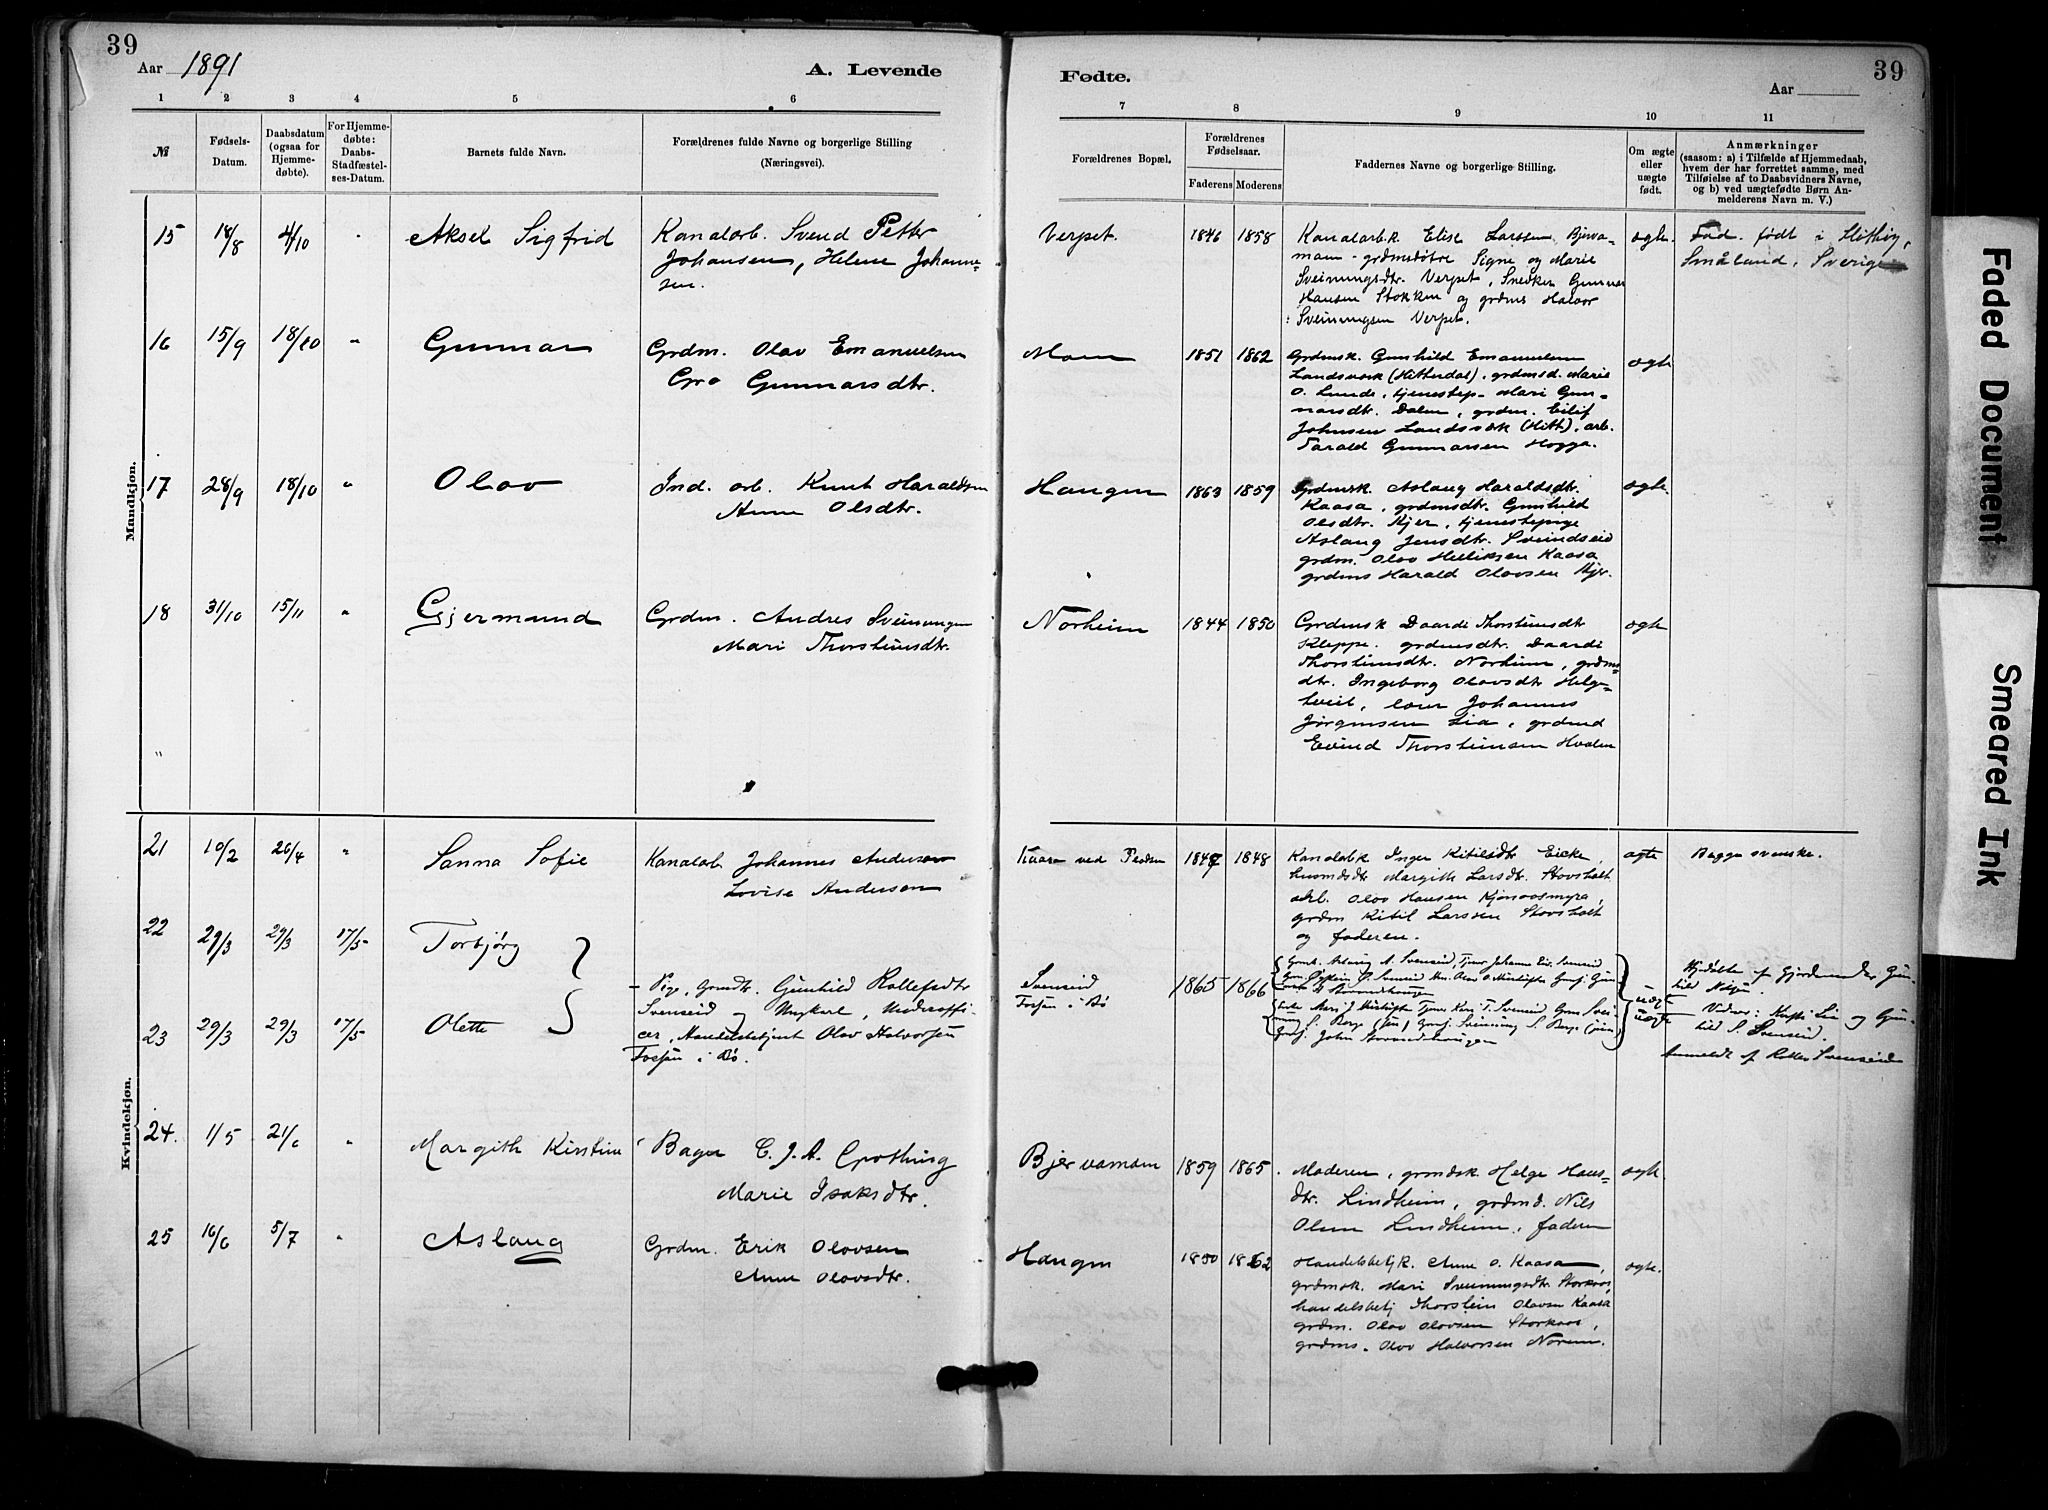 39
Aar 1891
A. Levende
Fødte.
39
Aar
1 2 3 4 5 6 7 8 9 10 11
№
Fødsels-
Datum.
Daabsdatum
(ogsaa for
Hjemme-
døbte).
For Hjemme-
døbte:
Daabs-
Stadfæstel-
ses-Datum.
Barnets fulde Navn.
Forældrenes fulde Navne og borgerlige Stilling
(Næringsvei).
Forældrenes Bopæl.
Forældrenes
Fødselsaar.
Faderens Moderens
Faddernes Navne og borgerlige Stilling.
Om ægte
eller
uægte
født.
Anmærkninger
(saasom: a) i Tilfælde af Hjemmedaab,
hvem der har forrettet samme, med
Tilføielse af to Daabsvidners Navne,
og b) ved uægtefødte Børn An-
melderens Navn m. V.)
Mandkjøn.
15 18/8 4/10 Aksel Sigfrid
Kanalarb. Svend Petter
Johansen, Helene Johanne-
sen.
Verpet. 1846 1858
Kanalarbk. Elise Larssen Bjerva-
mann - grdmsdøtre Signe og Marie
Sveinungsdtr. Verpet, Snedker Gunnar
Hansen Stokken og grdms Halvor
Sveinungsen Verpet.
ægte.
Fad. født i
Småland, Sverige
16 15/9 18/10 " Gunnar
Grdm. Olav Emanuelsen
Gro Gunnarsdtr.
Moen 1851 1862
Grdmsk. Gunhild Emanuelsen
Landsverk (Hitterdal), grdmsd. Marie
O. Lunde, tjenestep- Mari Gun-
narsdtr. Dalen, grdm. Eilif
Johnsen Landsverk (Hitt), arb.
Tarald Gunnarsen Hogga.
ægte
17 28/9 18/10 " Olav
Ind. arb. Knut Haraldsen
Anne Olsdtr.
Haugen 1863 1859
Grdmsk. Aslaug Haraldsdtr.
Kaasa, grdmsdtr. Gunhild
Olsdtr. Kjer, tjenestepige
Aslaug Jensdtr. Sveindseid
grdm. Olav Helliksen Kaasa
grdms Harald Olavsen Kjer.
ægte.
18 31/10 15/11 " Gjermund
Grdm. Andres Sveinungsen
Mari Thorsteinsdtr.
Norheim 1844 1850
Grdmsk Daardi Thorsteinsdtr
Kleppe. grdmsdtr. Daardi
Thorsteinsdtr. Norheim, grdms-
dtr. Ingeborg Olavsdtr Helge-
tveit, lærer Johannes
Jørgensen Lia, grdmd
Eivind Thorsteinsen Hvalen
ægte
"
Kvindekjøn.
21 10/2 26/4 " Sanna Sofie
Kanalarb Johannes Anderson
Lovise Anderson
Kaasa ved 1847 1848
Kanalarbk Inger Kitilsdtr Eieke,
husmdsdtr Margith Larsdtr. Stavsholt
arb. Olav Hansen Kjønaasmyra,
grdm Kitil Larssen Stavsholt
og faderen.
ægte
Begge svenske.
22 29/3 29/3 17/5 Torbjørg
23 29/3 29/3 17/5 Olette
Pige, Grmdtr. Gunhild Rollefsdtr
Svenseid og Ungkarl, Underoffi-
cer, Handelsbetjent Olav Halvorsen
Fosjen i Bø.
Svenseid
Fosjen i Bø
1865 1866
Grmk. Aslaug A. Svenseid, Johannes Svenseid
Mari J
S. Svenseid
Grmf. John
uægte
uægte
Hjdøbte af Gjordemoder Gun-
hild
Vidner: Lia og Gun-
hild S. Svenseid.
Anmeldt af Rollev Svenseid
24. 1/5 21/6 " Margith Kirstine
Bager C. J. A. Grothing
Marie Isaksdtr.
Bjervamoen 1859 1865.
Moderen, grmdsk. Helge Hans-
dtr. Lindheim, grdmd. Nils
Olsen Lindheim, faderen
ægte.
25 16/6 5/7 " Aslaug
Grdm. Erik Olavsen
Anne Olavsdtr.
Haugen 1850 1862
Handelsbetjk. Anne O. Kaasa,
grdmsk. Mari Sveinungsdtr. Storkaas,
handelsbetj Thorstein Olavsen Kaasa
grdm. Olav Olavsen Storkaas,
grdms. Olav Halvorsen Noreim.
ægte.
Faded Document
Smeared Ink